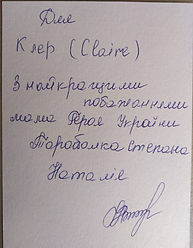 Для
Клер (Claire)
З найкращими
побажаннями
мама Героя України
Тараболка Степана
Наталія